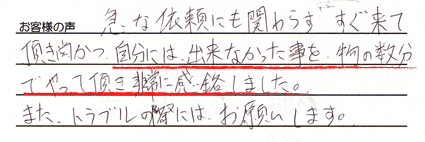 お客様の声
急な依頼にも関わらず すぐ来て
頂き尚かつ、自分には、出来なかった事を、物の数分
でやって頂き非常に感銘しました。
また、トラブルの際には、お願いします。